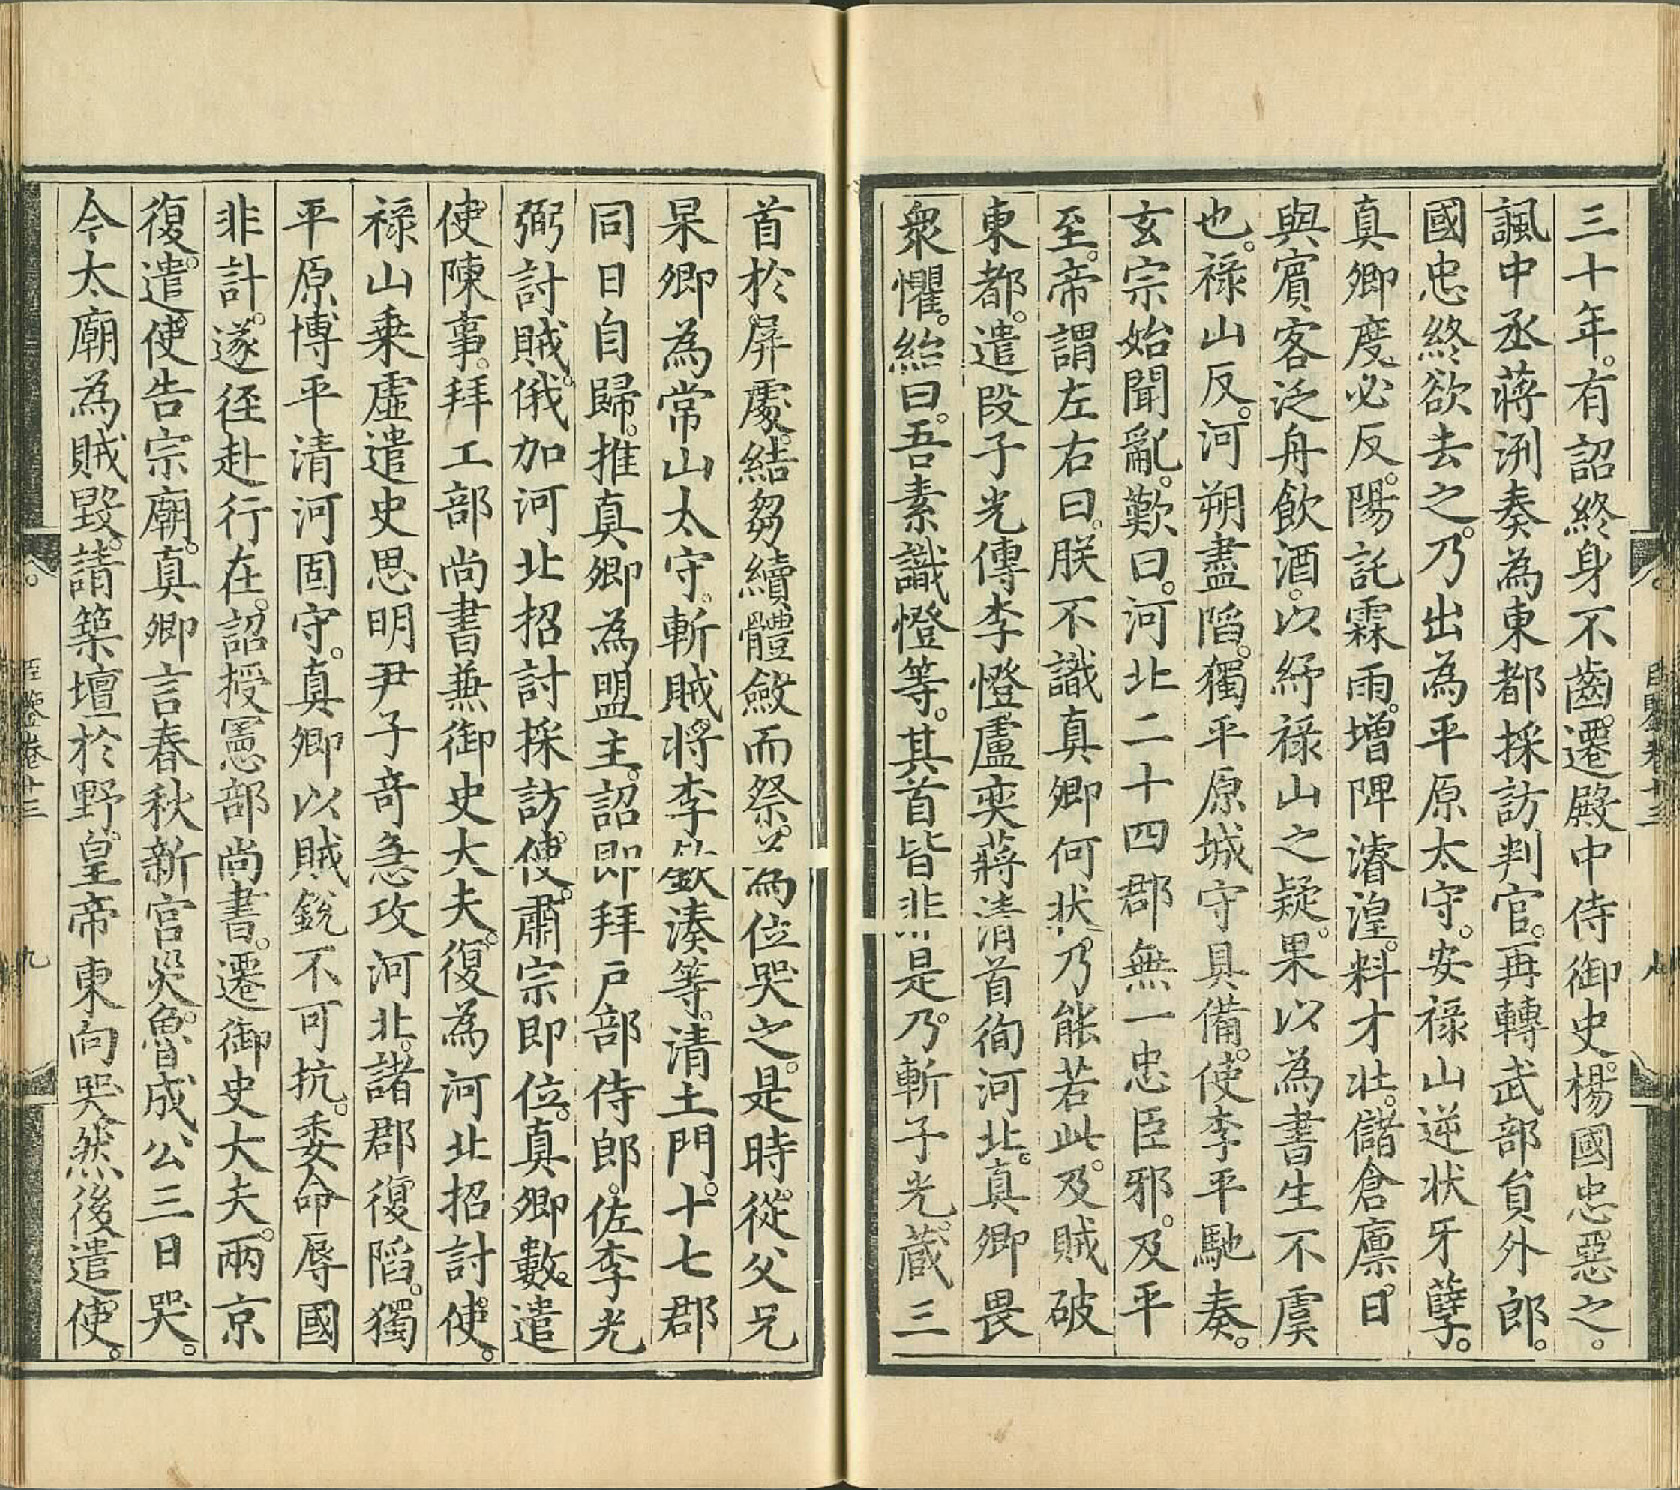 三十年。有詔終身不齒。遷殿中侍御史。楊國忠惡之。
諷中丞蔣洌奏為東都採訪判官。再轉武部員外郎。
國忠終欲去之。乃出為平原太守。安祿山逆狀牙孽。
真卿度必反。陽託霖雨。增陴濬湟。料才壯。儲倉廩。日
與賓客泛舟飲酒。以紓祿山之疑。果以為書生不虞
也。祿山反。河朔盡陷。獨平原城守具備。使李平馳奏。
玄宗始聞亂。歎曰。河北二十四郡無一忠臣邪。及平
至。帝謂左右曰。朕不識真卿何狀。乃能若此。及賊破
東都。遣段子光傳李憕盧奕蔣清首徇河北。真卿畏
衆懼。紿曰。吾素識憕等。其首皆非是。乃斬子光。藏三
首於屏處。結芻續體斂而祭。為位哭之。是時。從父兄
杲卿為常山太守。斬賊將李欽湊等。清土門。十七郡
同日自歸。推真卿為盟主。詔即拜戶部侍郎。佐李光
弼討賊。俄加河北招討採訪使。肅宗即位。真卿數遣
使陳事。拜工部尚書兼御史大夫。復為河北招討使。
祿山乗虛遣史思明尹子奇急攻河北。諸郡復陷。獨
平原博平清河固守。真卿以賊銳不可抗。委命辱國
非計。遂徑赴行在。詔授憲部尚書。遷御史大夫。兩京
復。遣使告宗廟。真卿言春秋新宮災。魯成公三日哭。
今太廟為賊毀。請築壇於野。皇帝東向哭。然後遣使。
臣鑒卷十三
九